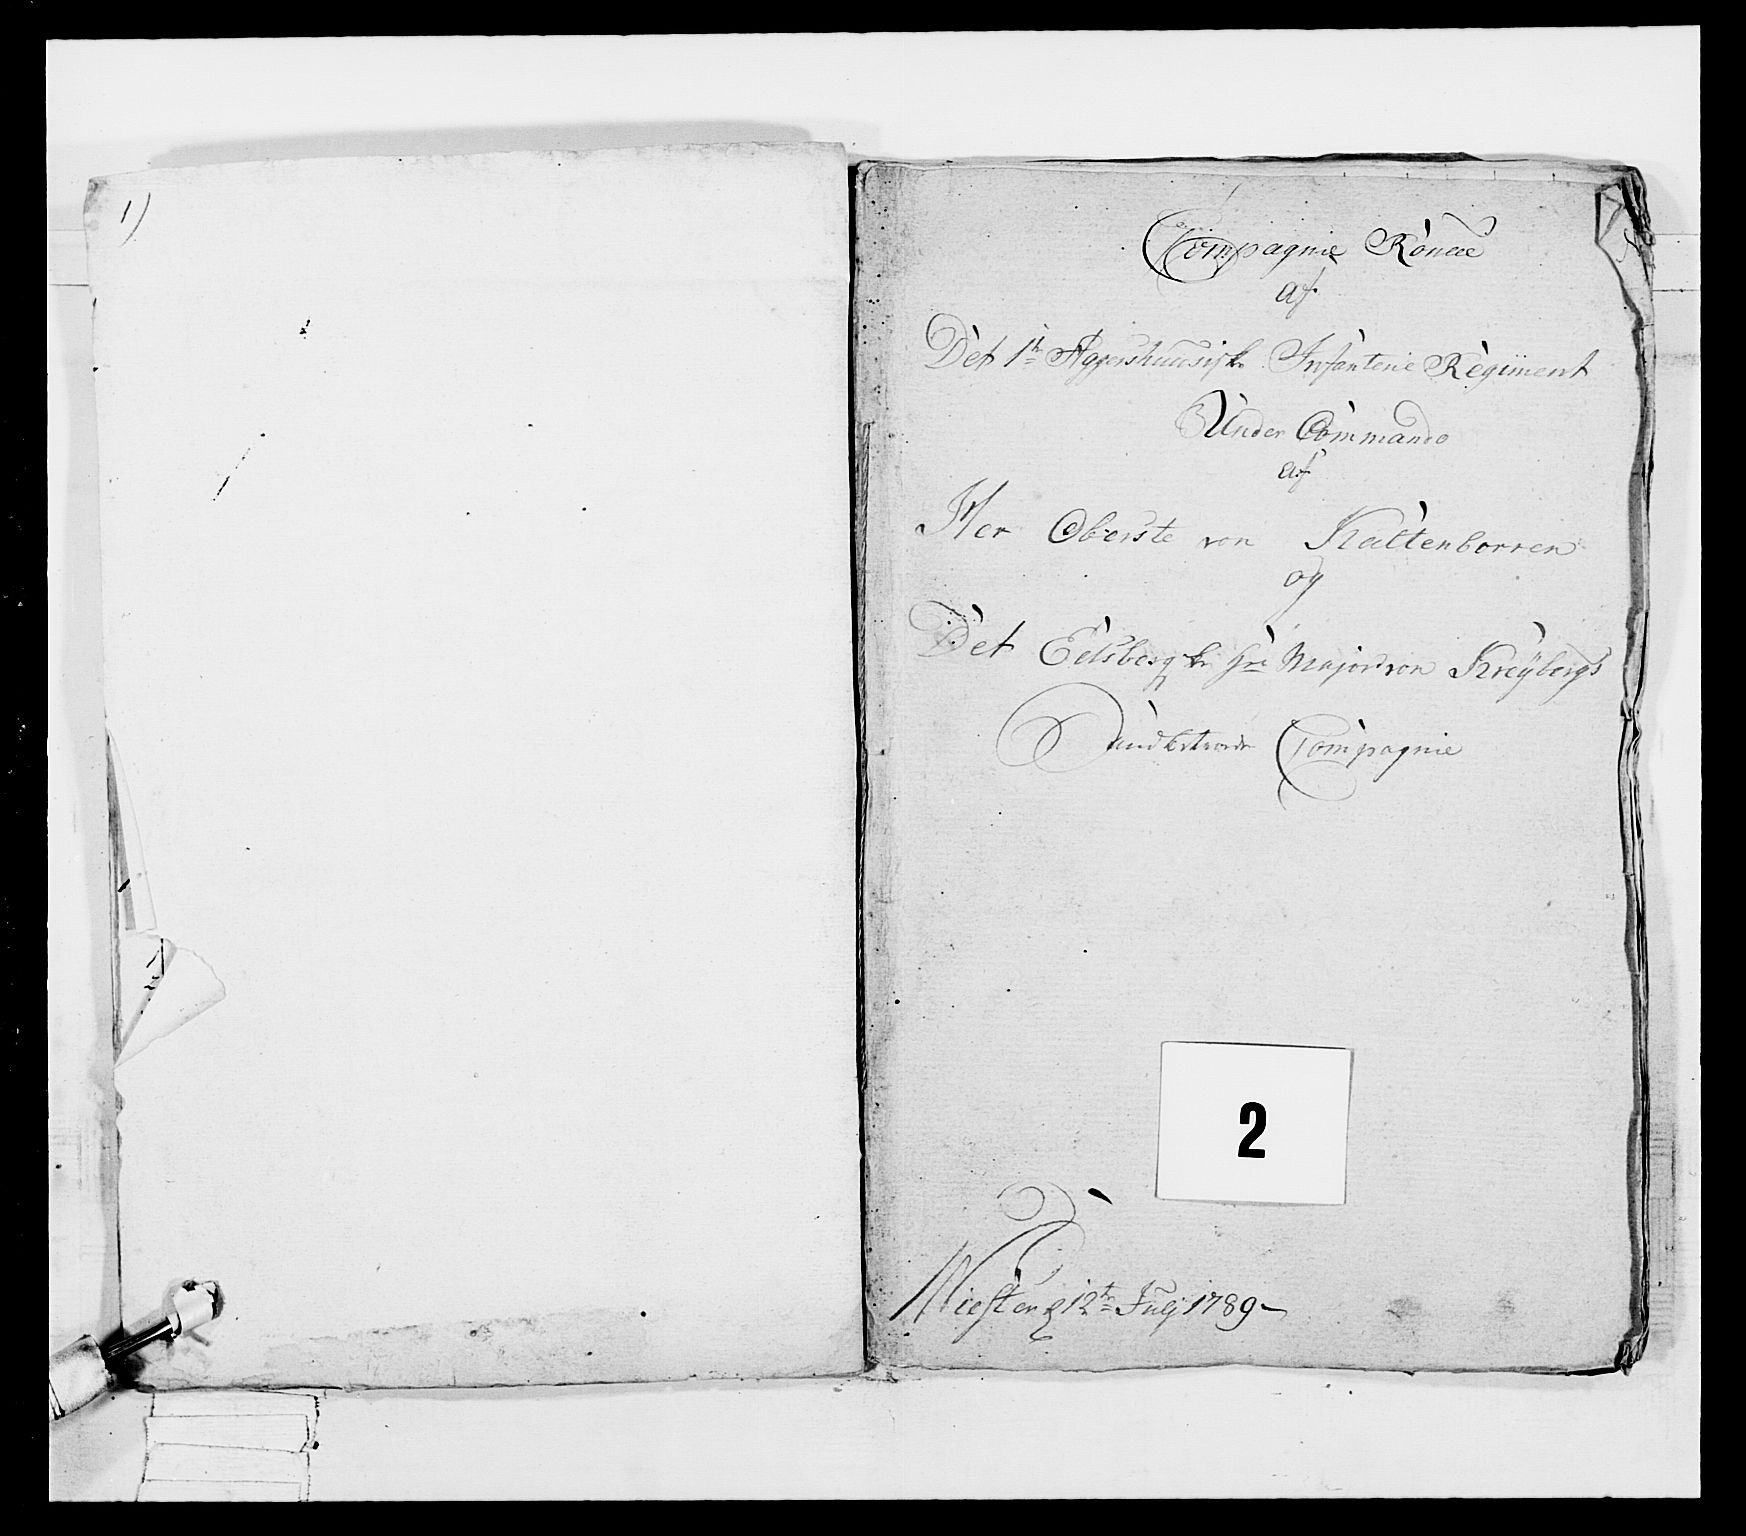 1)
Compagnie Rolle
af
Det 1te Aggershuusiske Infanterie Regiment
Under Commando
af
Her Oberste von Kaltenborren
og
Det Eedsbergske Hrr Major von Kreÿbergs
Compagnie
2
d 12te Julj 1789